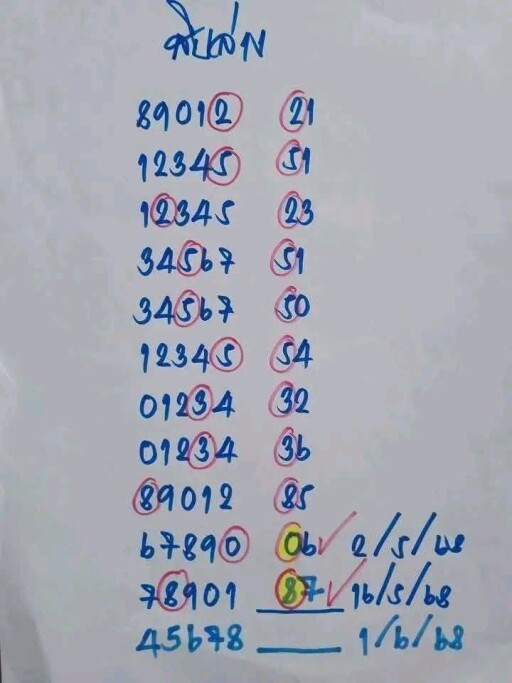 สิบล่าง
89012 21
12345 51
12345 23
34567 51
34567 50
12345 54
01234 32
01234 36
89012 85
67890 06 ✓ 2/5/68
78901 87 ✓ 16/5/68
45678 ____ 1/6/68